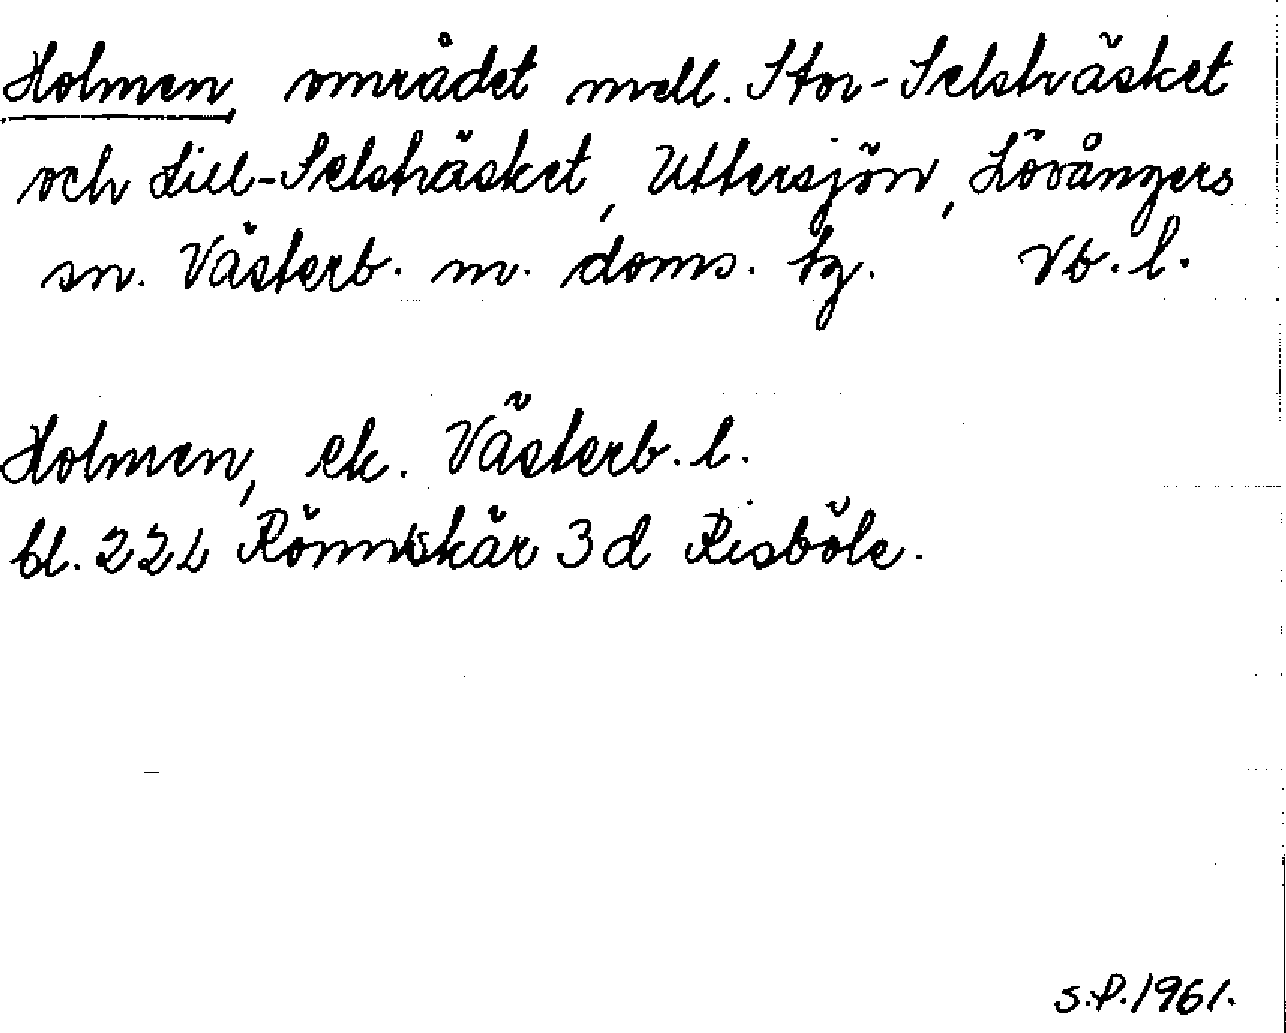 Holmen, området mell. Stor-Selsträsket
och Lill-Selsträsket, Uttersjön, Lövångers
sn. Västerb. n. doms. tg. Vb. l.
Holmen, ek. Västerb. l.
bl. 22L Rönnskär 3d Risböle.
S.P. 1961.